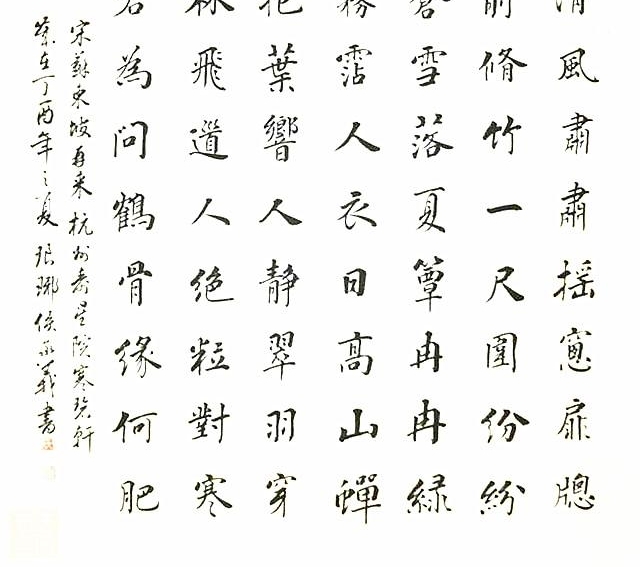 清風肅肅揺窻扉牕
前脩竹一尺圍份紛
蒼雪落夏簟冉冉緑
霧霑人衣日高山蟬
抱葉響人静翠羽穿
林飛道人絶粒對寒
碧為問鶴骨緣何肥
宋蘇東坡再来杭州壽星院寒碧軒
歲在丁酉年之夏琅琊侯義書